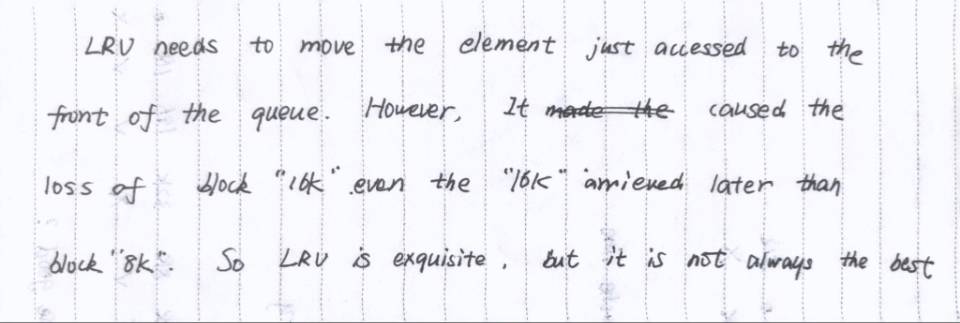 LRU needs to move the element just accessed to the
front of the queue. However, It made the caused the
loss of block "16k" even the "16K" arrieved later than
block "8k". So LRU is exquisite, but it is not always the best